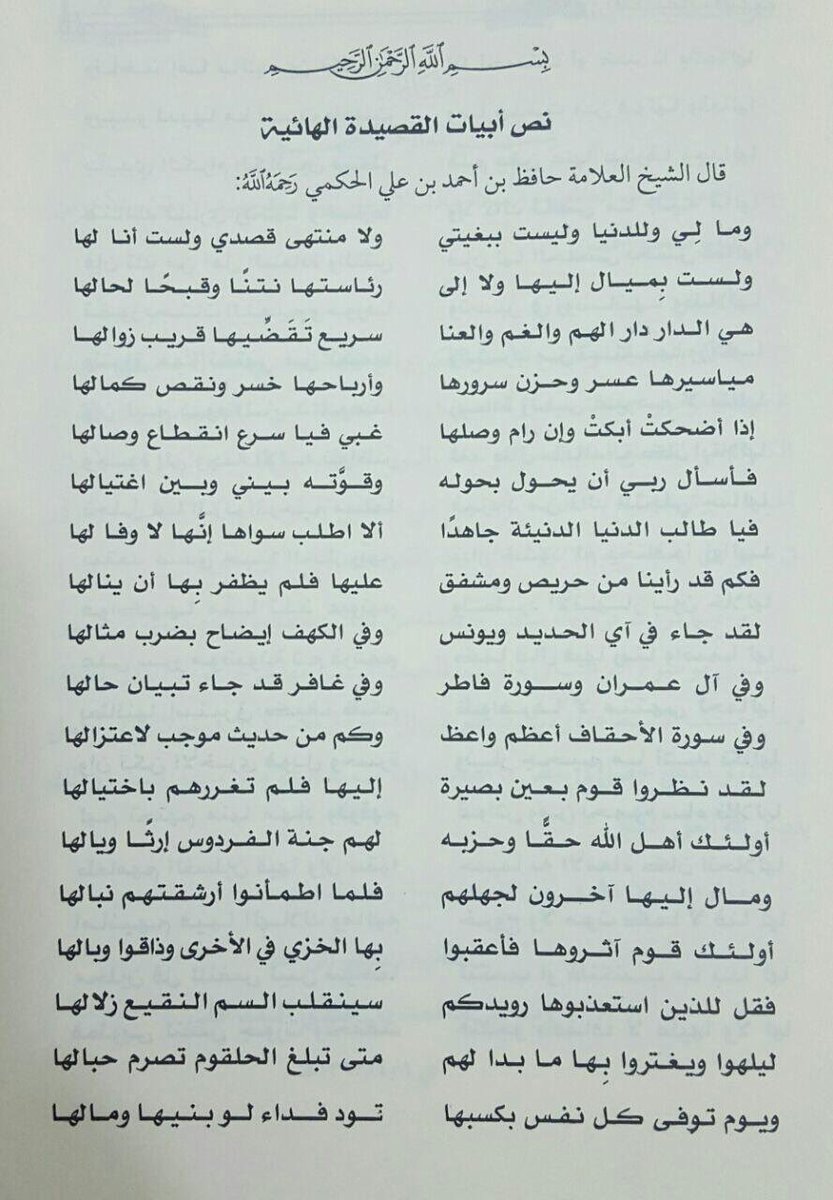 بسم الله الرحمن الرحيم
نص أبيات القصيدة الهائية
قال الشيخ العلامة حافظ بن أحمد بن علي الحكمي رَحِمَهُ اللَّهُ:
وما لِي وللدنيا وليست ببغيتي ولا منتهى قصدي ولست أنا لها
ولست بِميال إليها ولا إلى رئاستها نتنًا وقبحًا لحالها
هي الدار دار الهم والغم والعنا سريع تَقَضِّيها قريب زوالها
مياسيرها عسر وحزن سرورها وأرباحها خسر ونقص كمالها
إذا أضحكتْ أبكتْ وإن رام وصلها غبي فيا سرع انقطاع وصالها
فأسأل ربي أن يحول بحوله وقوَّته بيني وبين اغتيالها
فيا طالب الدنيا الدنيئة جاهدًا ألا اطلب سواها إنَّها لا وفا لها
فكم قد رأينا من حريص ومشفق عليها فلم يظفر بِها أن ينالها
لقد جاء في آي الحديد ويونس وفي الكهف إيضاح بضرب مثالها
وفي آل عمران وسورة فاطر وفي غافر قد جاء تبيان حالها
وفي سورة الأحقاف أعظم واعظ وكم من حديث موجب لاعتزالها
لقد نظروا قوم بعين بصيرة إليها فلم تغررهم باختيالها
أولئك أهل الله حقًّا وحزبه لهم جنة الفردوس إرثًا ويالها
ومال إليها آخرون لجهلهم فلما اطمأنوا أرشقتهم نبالها
أولئك قوم آثروها فأعقبوا بِها الخزي في الأخرى وذاقوا وبالها
فقل للذين استعذبوها رويدكم سينقلب السم النقيع زلالها
ليلهوا ويغتروا بِها ما بدا لهم متى تبلغ الحلقوم تصرم حبالها
ويوم توفى كل نفس بكسبها تود فداء لو بنيها ومالها